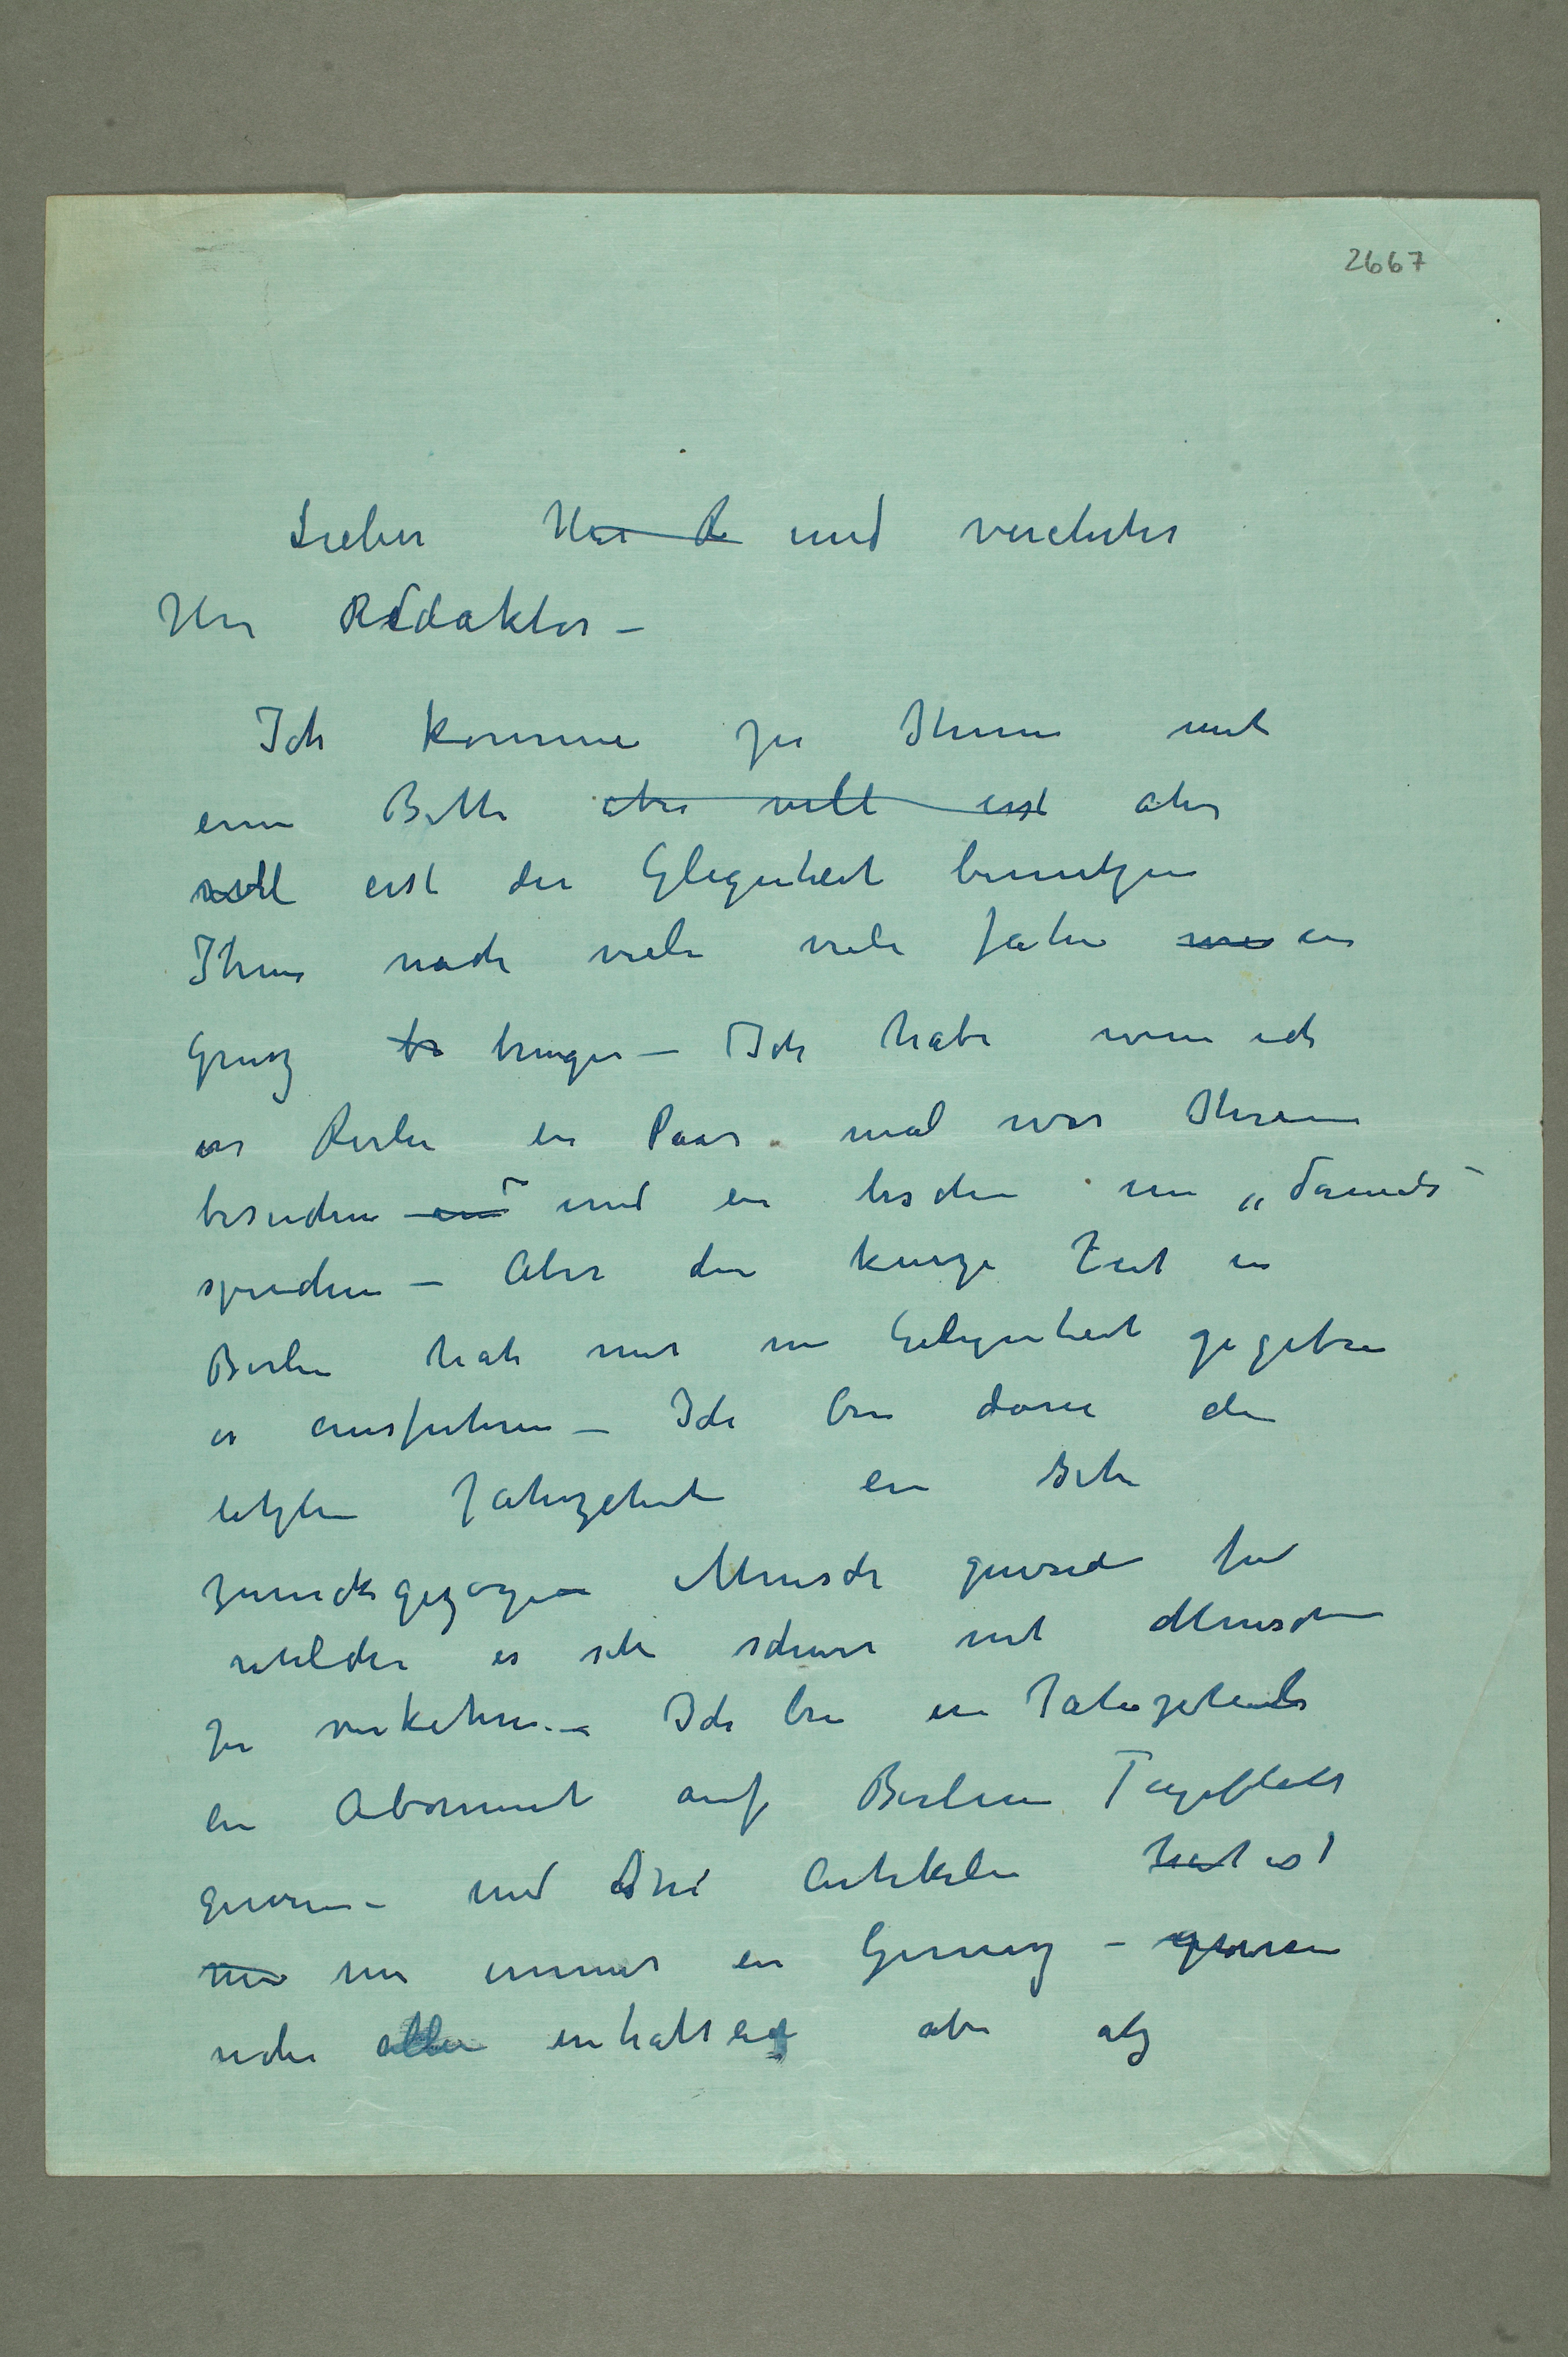 2667
Lieber Herr d und verehrter
Herr Redaktør –
Ich komme zu Ihnen mit
einer Bitte aber vill erst aber
vill erst die Glegenheit benutzen
Ihnen nach viele viele Jahre en
Grusz br bringen – Ich habe wenn ich
in Berlin en Paar mal war Ihnen
besuchen und en bschen um „damals"
sprechen – Aber die kurze Zeit in
Berlin hat mir nie Gelegenheit gegeben
es ausfuhren – Ich bin den
letzten Jahrzehnt en sehr
zuruckgezogen Mensch
es sehr schwer mit Menschen
zu verkehren – Ich bin en Jahrzehnte
en Abonnent auf Berliner Tageblatt
gewesen – und Ihre Artikeln hat ist
mir mir immer en Genusz – gewesen
alle aber als